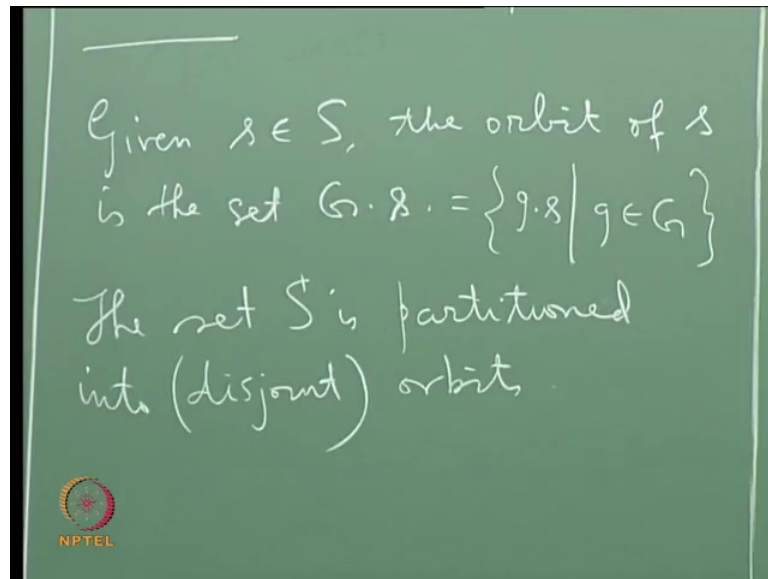 Given s ∈ S, the orbit of s
is the set G. s. = {g.s | g ∈ G}
The set S is partitioned
into (disjoint) orbits.
NPTEL